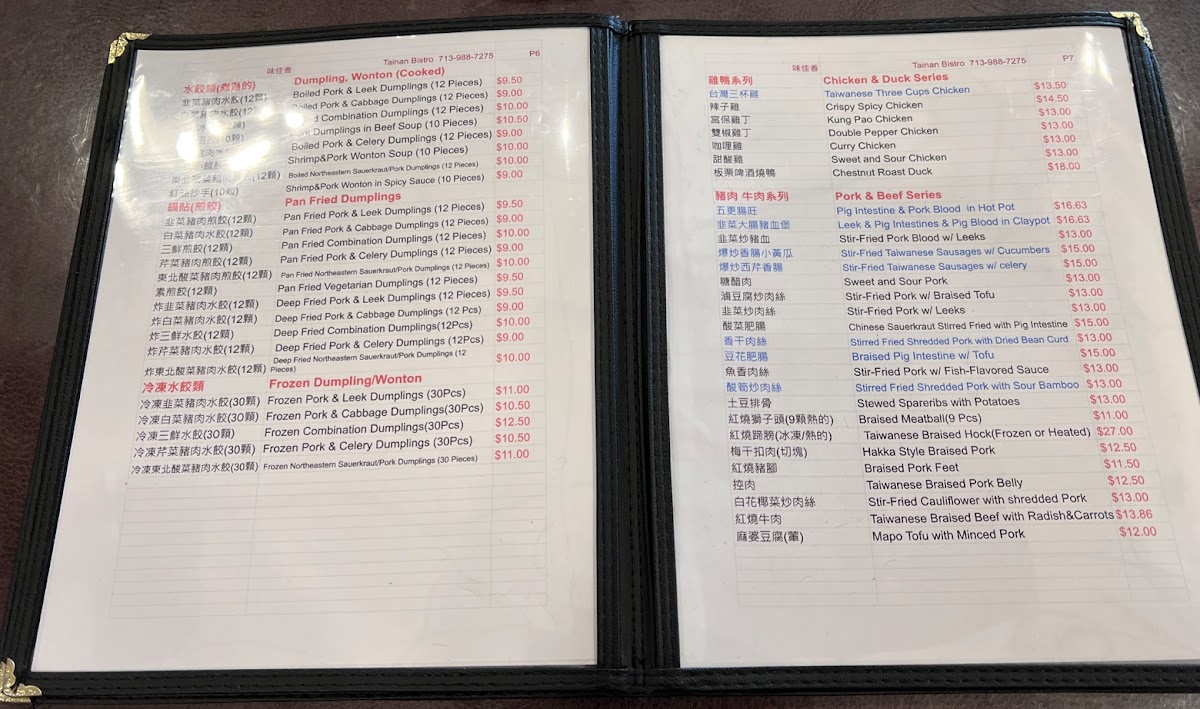 味佳香 Tainan Bistro 713-988-7275 P6
水餃類(煮熟的) Dumpling, Wonton (Cooked)
韭菜豬肉水餃(12顆) Boiled Pork & Leek Dumplings (12 Pieces) $9.50
Boiled Pork & Cabbage Dumplings (12 Pieces) $9.00
Combination Dumplings (12 Pieces) $10.00
Dumplings in Beef Soup (10 Pieces) $10.50
Boiled Pork & Celery Dumplings (12 Pieces) $9.00
Shrimp&Pork Wonton Soup (10 Pieces) $10.00
Boiled Northeastern Sauerkraut/Pork Dumplings (12 Pieces) $10.00
紅油抄手(10顆) Shrimp&Pork Wonton in Spicy Sauce (10 Pieces) $9.00
鍋貼(煎餃) Pan Fried Dumplings
韭菜豬肉煎餃(12顆) Pan Fried Pork & Leek Dumplings (12 Pieces) $9.50
白菜豬肉水餃(12顆) Pan Fried Pork & Cabbage Dumplings (12 Pieces) $9.00
三鮮煎餃(12顆) Pan Fried Combination Dumplings (12 Pieces) $10.00
芹菜豬肉煎餃(12顆) Pan Fried Pork & Celery Dumplings (12 Pieces) $9.00
東北酸菜豬肉煎餃(12顆) Pan Fried Northeastern Sauerkraut/Pork Dumplings (12 Pieces) $10.00
素煎餃(12顆) Pan Fried Vegetarian Dumplings (12 Pieces) $9.50
炸韭菜豬肉水餃(12顆) Deep Fried Pork & Leek Dumplings (12 Pieces) $9.50
炸白菜豬肉水餃(12顆) Deep Fried Pork & Cabbage Dumplings (12 Pcs) $9.00
炸三鮮水餃(12顆) Deep Fried Combination Dumplings(12Pcs) $10.00
炸芹菜豬肉水餃(12顆) Deep Fried Pork & Celery Dumplings (12Pcs) $9.00
炸東北酸菜豬肉水餃(12顆) Deep Fried Northeastern Sauerkraut/Pork Dumplings (12 Pieces) $10.00
冷凍水餃類 Frozen Dumpling/Wonton
冷凍韭菜豬肉水餃(30顆) Frozen Pork & Leek Dumplings (30Pcs) $11.00
冷凍白菜豬肉水餃(30顆) Frozen Pork & Cabbage Dumplings(30Pcs) $10.50
冷凍三鮮水餃(30顆) Frozen Combination Dumplings(30Pcs) $12.50
冷凍芹菜豬肉水餃(30顆) Frozen Pork & Celery Dumplings (30Pcs) $10.50
冷凍東北酸菜豬肉水餃(30顆) Frozen Northeastern Sauerkraut/Pork Dumplings (30 Pieces) $11.00
味佳香 Tainan Bistro 713-988-7275 P7
雞鴨系列 Chicken & Duck Series
台灣三杯雞 Taiwanese Three Cups Chicken $13.50
辣子雞 Crispy Spicy Chicken $14.50
宮保雞丁 Kung Pao Chicken $13.00
雙椒雞丁 Double Pepper Chicken $13.00
咖哩雞 Curry Chicken $13.00
甜酸雞 Sweet and Sour Chicken $13.00
板栗啤酒燒鴨 Chestnut Roast Duck $16.00
豬肉 牛肉系列 Pork & Beef Series
五更腸旺 Pig Intestine & Pork Blood in Hot Pot $16.63
韭菜大腸豬血堡 Leek & Pig Intestines & Pig Blood in Claypot $16.63
韭菜炒豬血 Stir-Fried Pork Blood w/ Leeks $13.00
爆炒香腸小黃瓜 Stir-Fried Taiwanese Sausages w/ Cucumbers $15.00
爆炒西芹香腸 Stir-Fried Taiwanese Sausages w/ celery $15.00
糖醋肉 Sweet and Sour Pork $13.00
滷豆腐炒肉絲 Stir-Fried Pork w/ Braised Tofu $13.00
韭菜炒肉絲 Stir-Fried Pork w/ Leeks $13.00
酸菜肥腸 Chinese Sauerkraut Stirred Fried with Pig Intestine $15.00
香干肉絲 Stirred Fried Shredded Pork with Dried Bean Curd $13.00
豆花肥腸 Braised Pig Intestine w/ Tofu $15.00
魚香肉絲 Stir-Fried Pork w/ Fish-Flavored Sauce $13.00
酸筍炒肉絲 Stirred Fried Shredded Pork with Sour Bamboo $13.00
土豆排骨 Stewed Spareribs with Potatoes $13.00
紅燒獅子頭(9顆熱的) Braised Meatball(9 Pcs) $11.00
紅燒蹄膀(冰凍/熱的) Taiwanese Braised Hock(Frozen or Heated) $27.00
梅干扣肉(切塊) Hakka Style Braised Pork $12.50
紅燒豬腳 Braised Pork Feet $11.50
控肉 Taiwanese Braised Pork Belly $12.50
白花椰菜炒肉絲 Stir-Fried Cauliflower with shredded Pork $13.00
紅燒牛肉 Taiwanese Braised Beef with Radish&Carrots $13.86
麻婆豆腐(葷) Mapo Tofu with Minced Pork $12.00